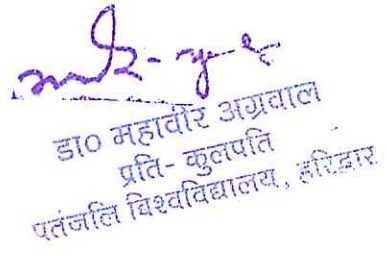 डा० महावीर अग्रवाल
प्रति- कुलपति
पतंजलि विश्वविद्यालय, हरिद्वार